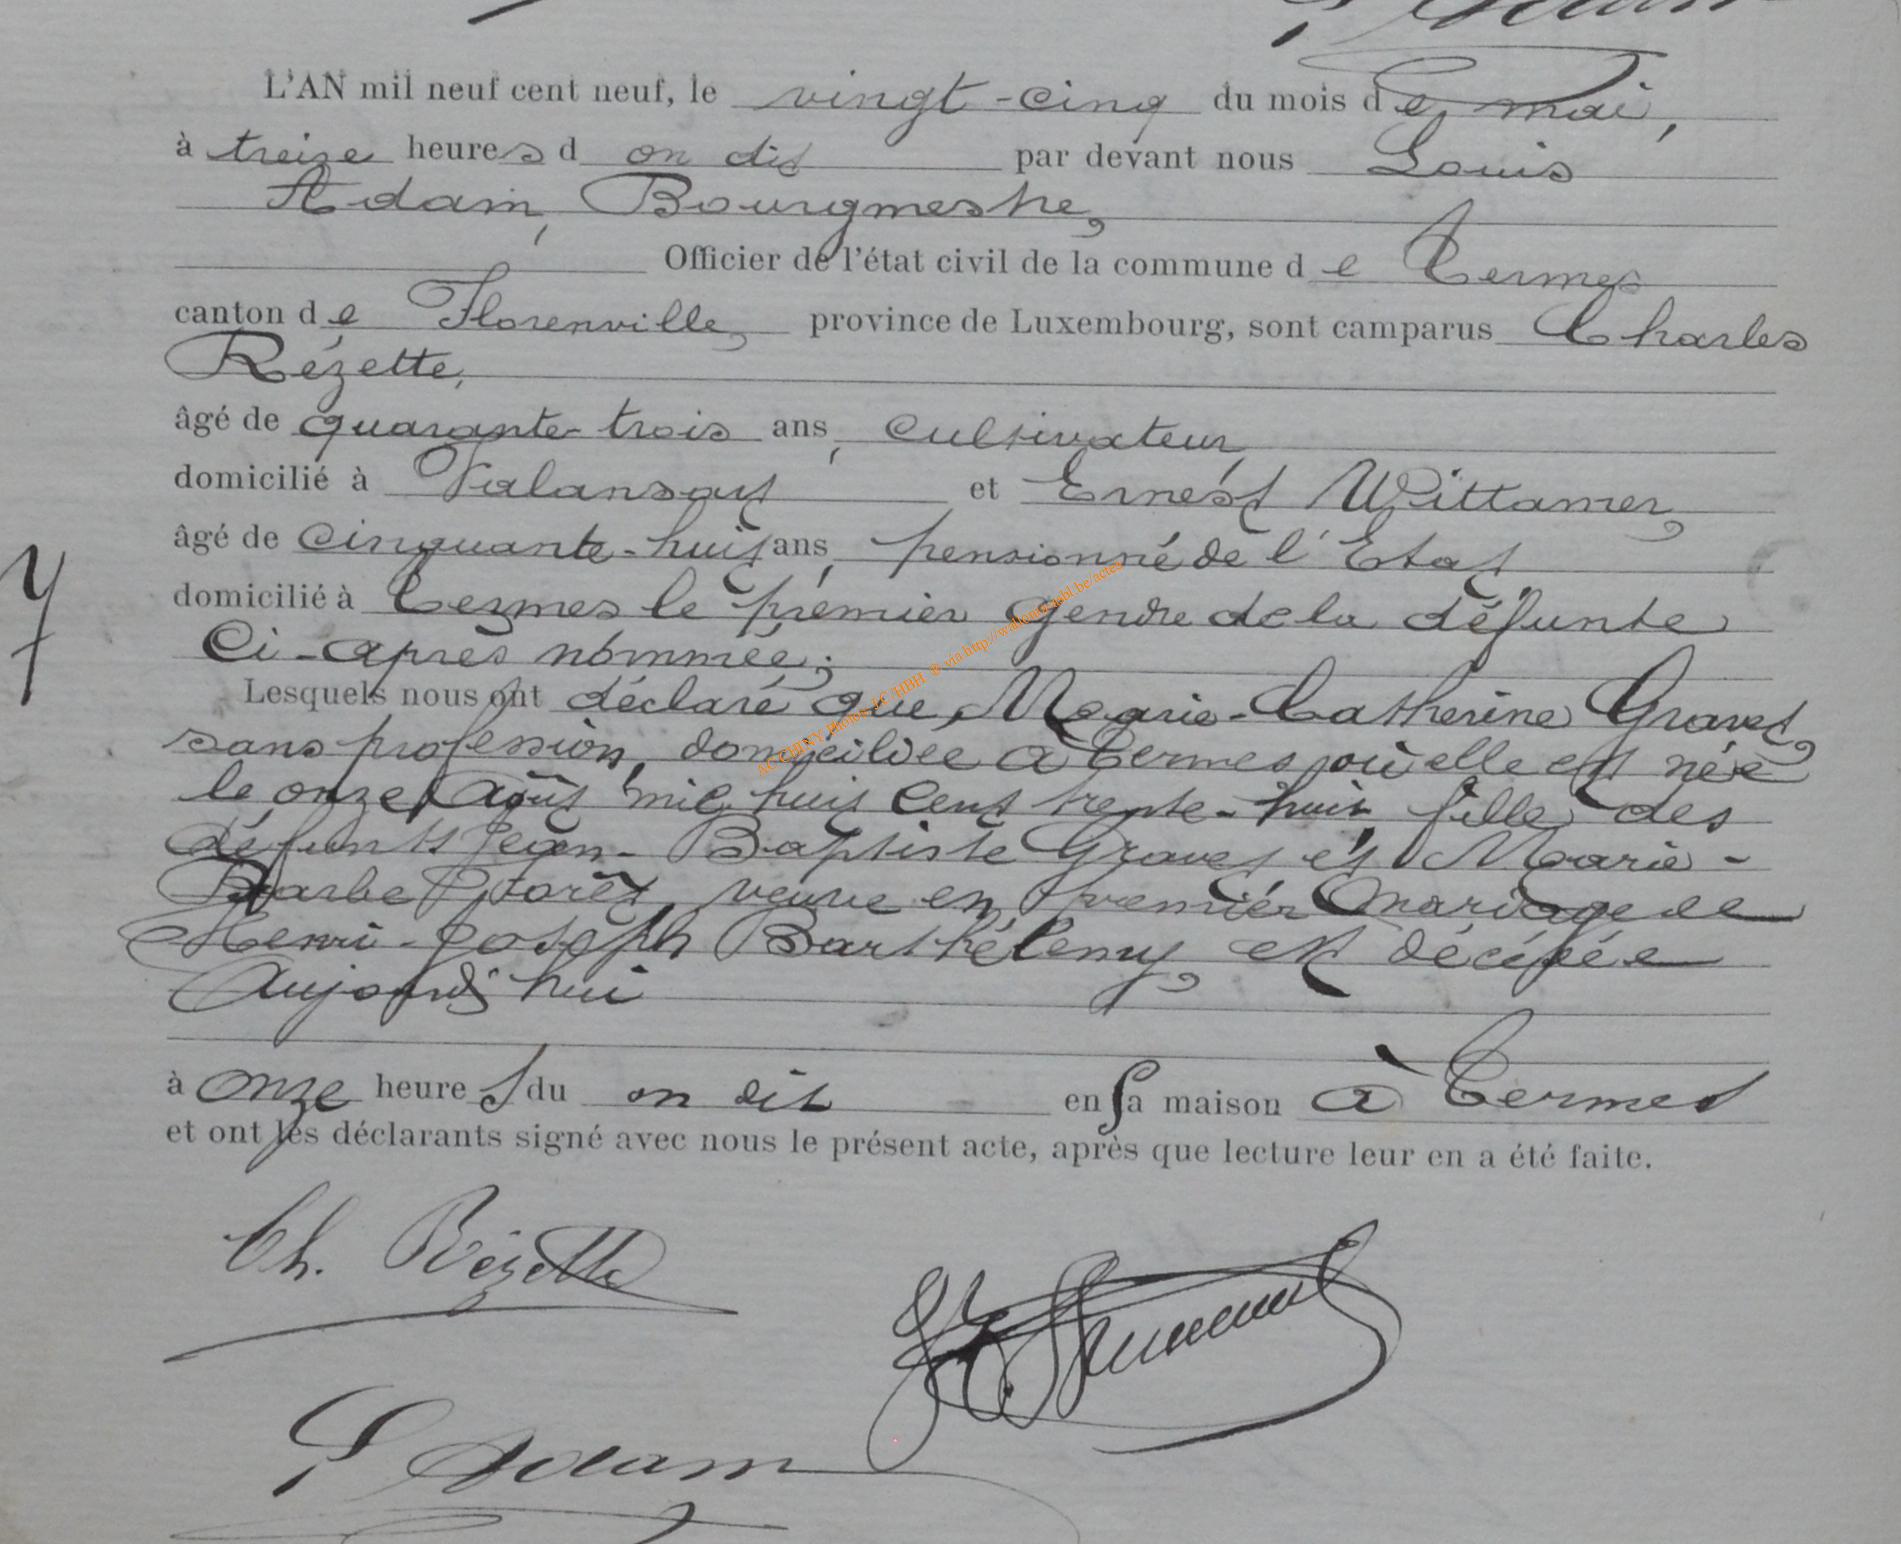 L'AN mil neuf cent neuf, le vingt-cinq du mois de mai,
à treize heures d on dit par devant nous Louis
Adam, Bourgmestre,
Officier de l'état civil de la commune de Termes
canton de Florenville, province de Luxembourg, sont camparus Charles
Rézette,
âgé de quarante-trois ans, cultivateur,
domicilié à Valansart et Ernest Wittamer,
âgé de cinquante-huit ans, pensionné de l'Etat,
domicilié à Termes le premier gendre de la défunte
Ci-après nommée;
7
Lesquels nous ont déclaré que Marie-Catherine Gravet,
sans profession, domiciliée à Termes où elle est née
le onze Août mil huit cent trente-huit, fille des
défunts Jean-Baptiste Gravet et Marie-
Barbe Forêt, veuve en premier mariage de
Henri-Joseph Barthélemy, est décédée
Aujourd'hui
à onze heures du on dit en sa maison à Termes
et ont les déclarants signé avec nous le présent acte, après que lecture leur en a été faite.
Ch. Rézette
L Adam
AC CHINY Photos J.C. HBH ® via http://wallonia-asbl.be/actes